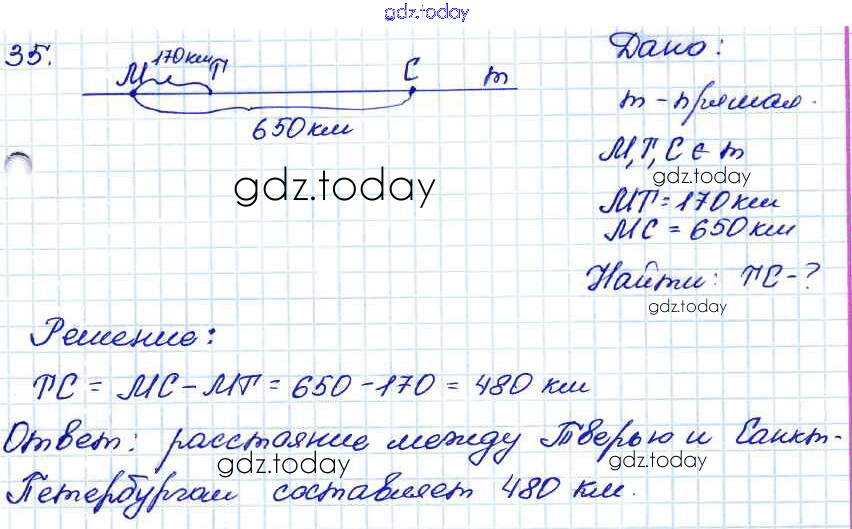 gdz.today
35.
170 км
М Т С m
650 км
gdz.today
Дано:
m - прямая.
М, Т, С ∈ m
gdz.today
МТ = 170 км
МС = 650 км
Найти: ТС - ?
gdz.today
Решение:
ТС = МС - МТ = 650 - 170 = 480 км
Ответ: расстояние между Тверью и Санкт-
gdz.today gdz.today
Петербургом составляет 480 км.